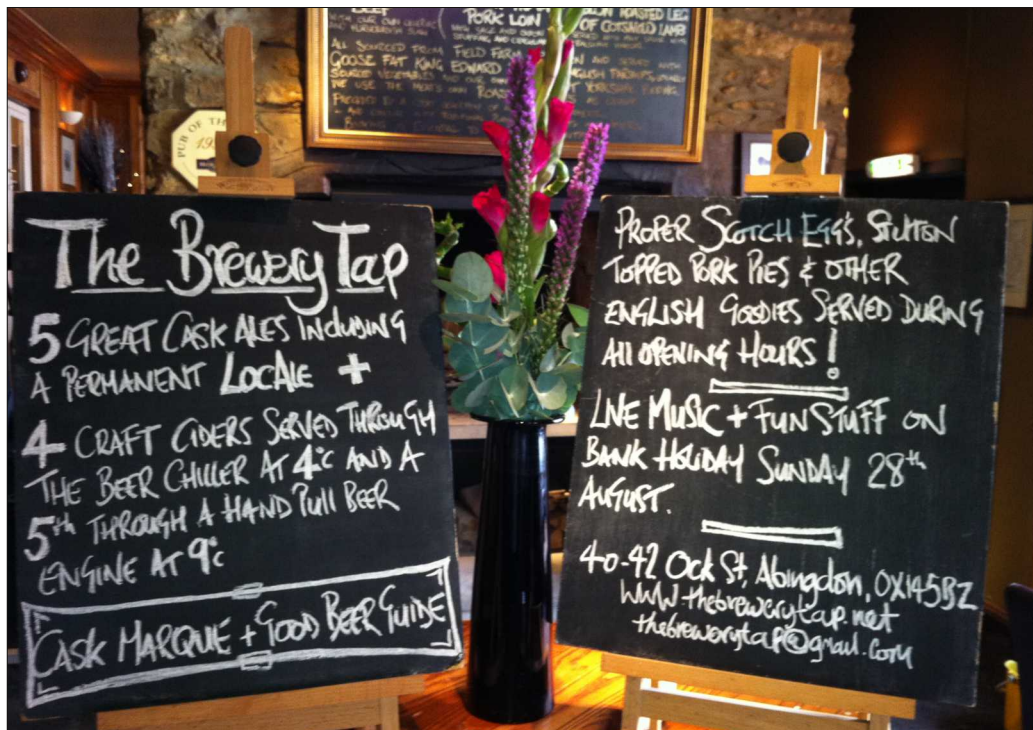 PORK LOIN
OF COTSWOLD LAMB
ALL SOURCED FROM FIELD FARM
AND SERVED WITH
GOOSE FAT KING EDWARD
ROAST
PUB OF TH
The Brewery Tap
5 GREAT CASK ALES INCLUDING
A PERMANENT LOCALE +
4 CRAFT CIDERS SERVED THROUGH
THE BEER CHILLER AT 4°C AND A
5th THROUGH A HAND PULL BEER
ENGINE AT 9°C
CASK MARQUE + GOOD BEER GUIDE
PROPER SCOTCH EGG'S, STILTON
TOPPED PORK PIES & OTHER
ENGLISH GOODIES SERVED DURING
All OPENING HOURS!
LIVE MUSIC + FUN STUFF ON
BANK HOLIDAY SUNDAY 28th
AUGUST.
40-42 Ock St, Abingdon, OX145BZ
www.thebrewerytap.net
thebrewerytap@gmail.com